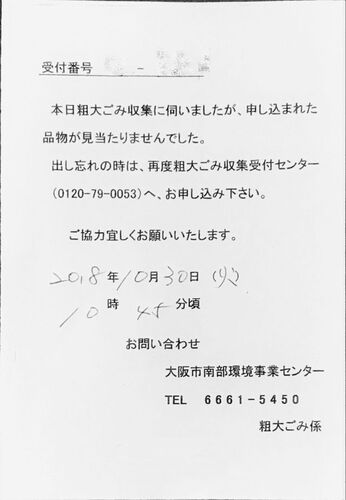 受付番号 -
本日粗大ごみ収集に伺いましたが、申し込まれた
品物が見当たりませんでした。
出し忘れの時は、再度粗大ごみ収集受付センター
(0120-79-0053)へ、お申し込み下さい。
ご協力宜しくお願いいたします。
2018年10月30日(火)
10時45分頃
お問い合わせ
大阪市南部環境事業センター
TEL 6661-5450
粗大ごみ係